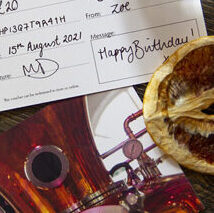 £20
From
Zoe
HPI3Q7T9RA1H
15th August 2021
Message:
Happy Birthday!
MD
This voucher can be redeemed in store or online.